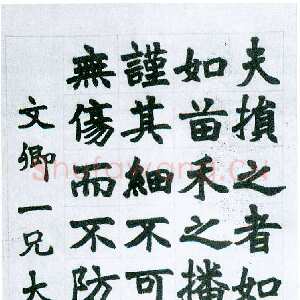 夫損之者如
如苗禾之播
謹其細不可
無傷而不防
文卿一兄大